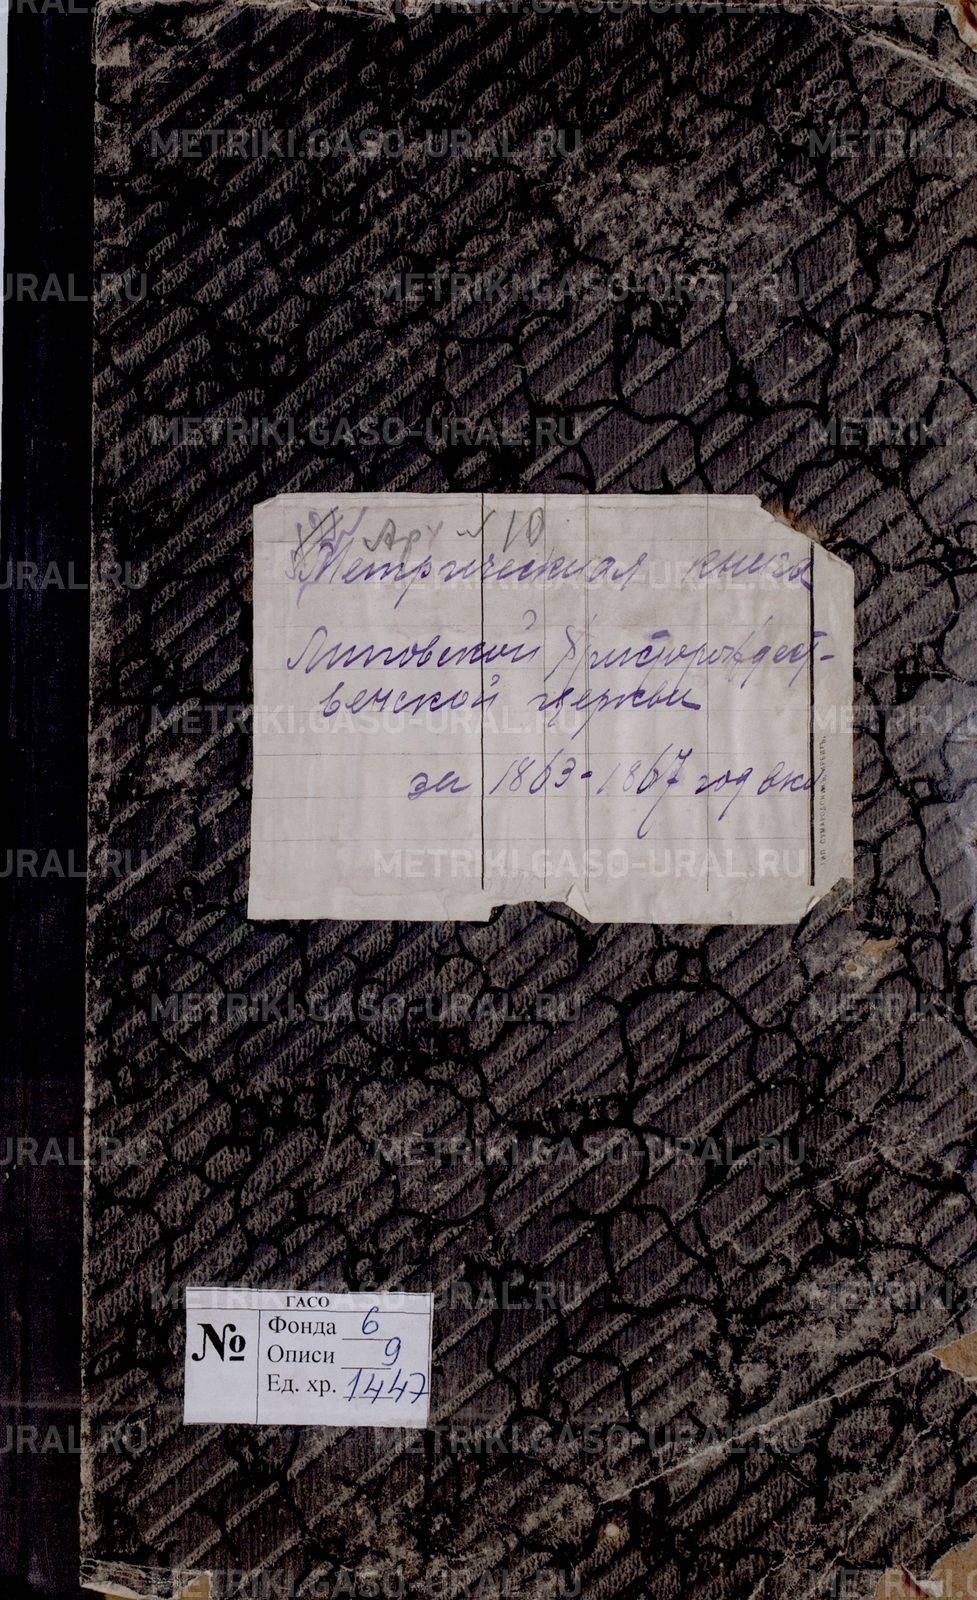 Арх № 10
Метрическая книга
Липовской Христорождест-
венской церкви
за 1863-1867 год вкл
ГАСО
№
Фонда 6
Описи 9
Ед. хр. 1447
METRIKI.GASO-URAL.RU